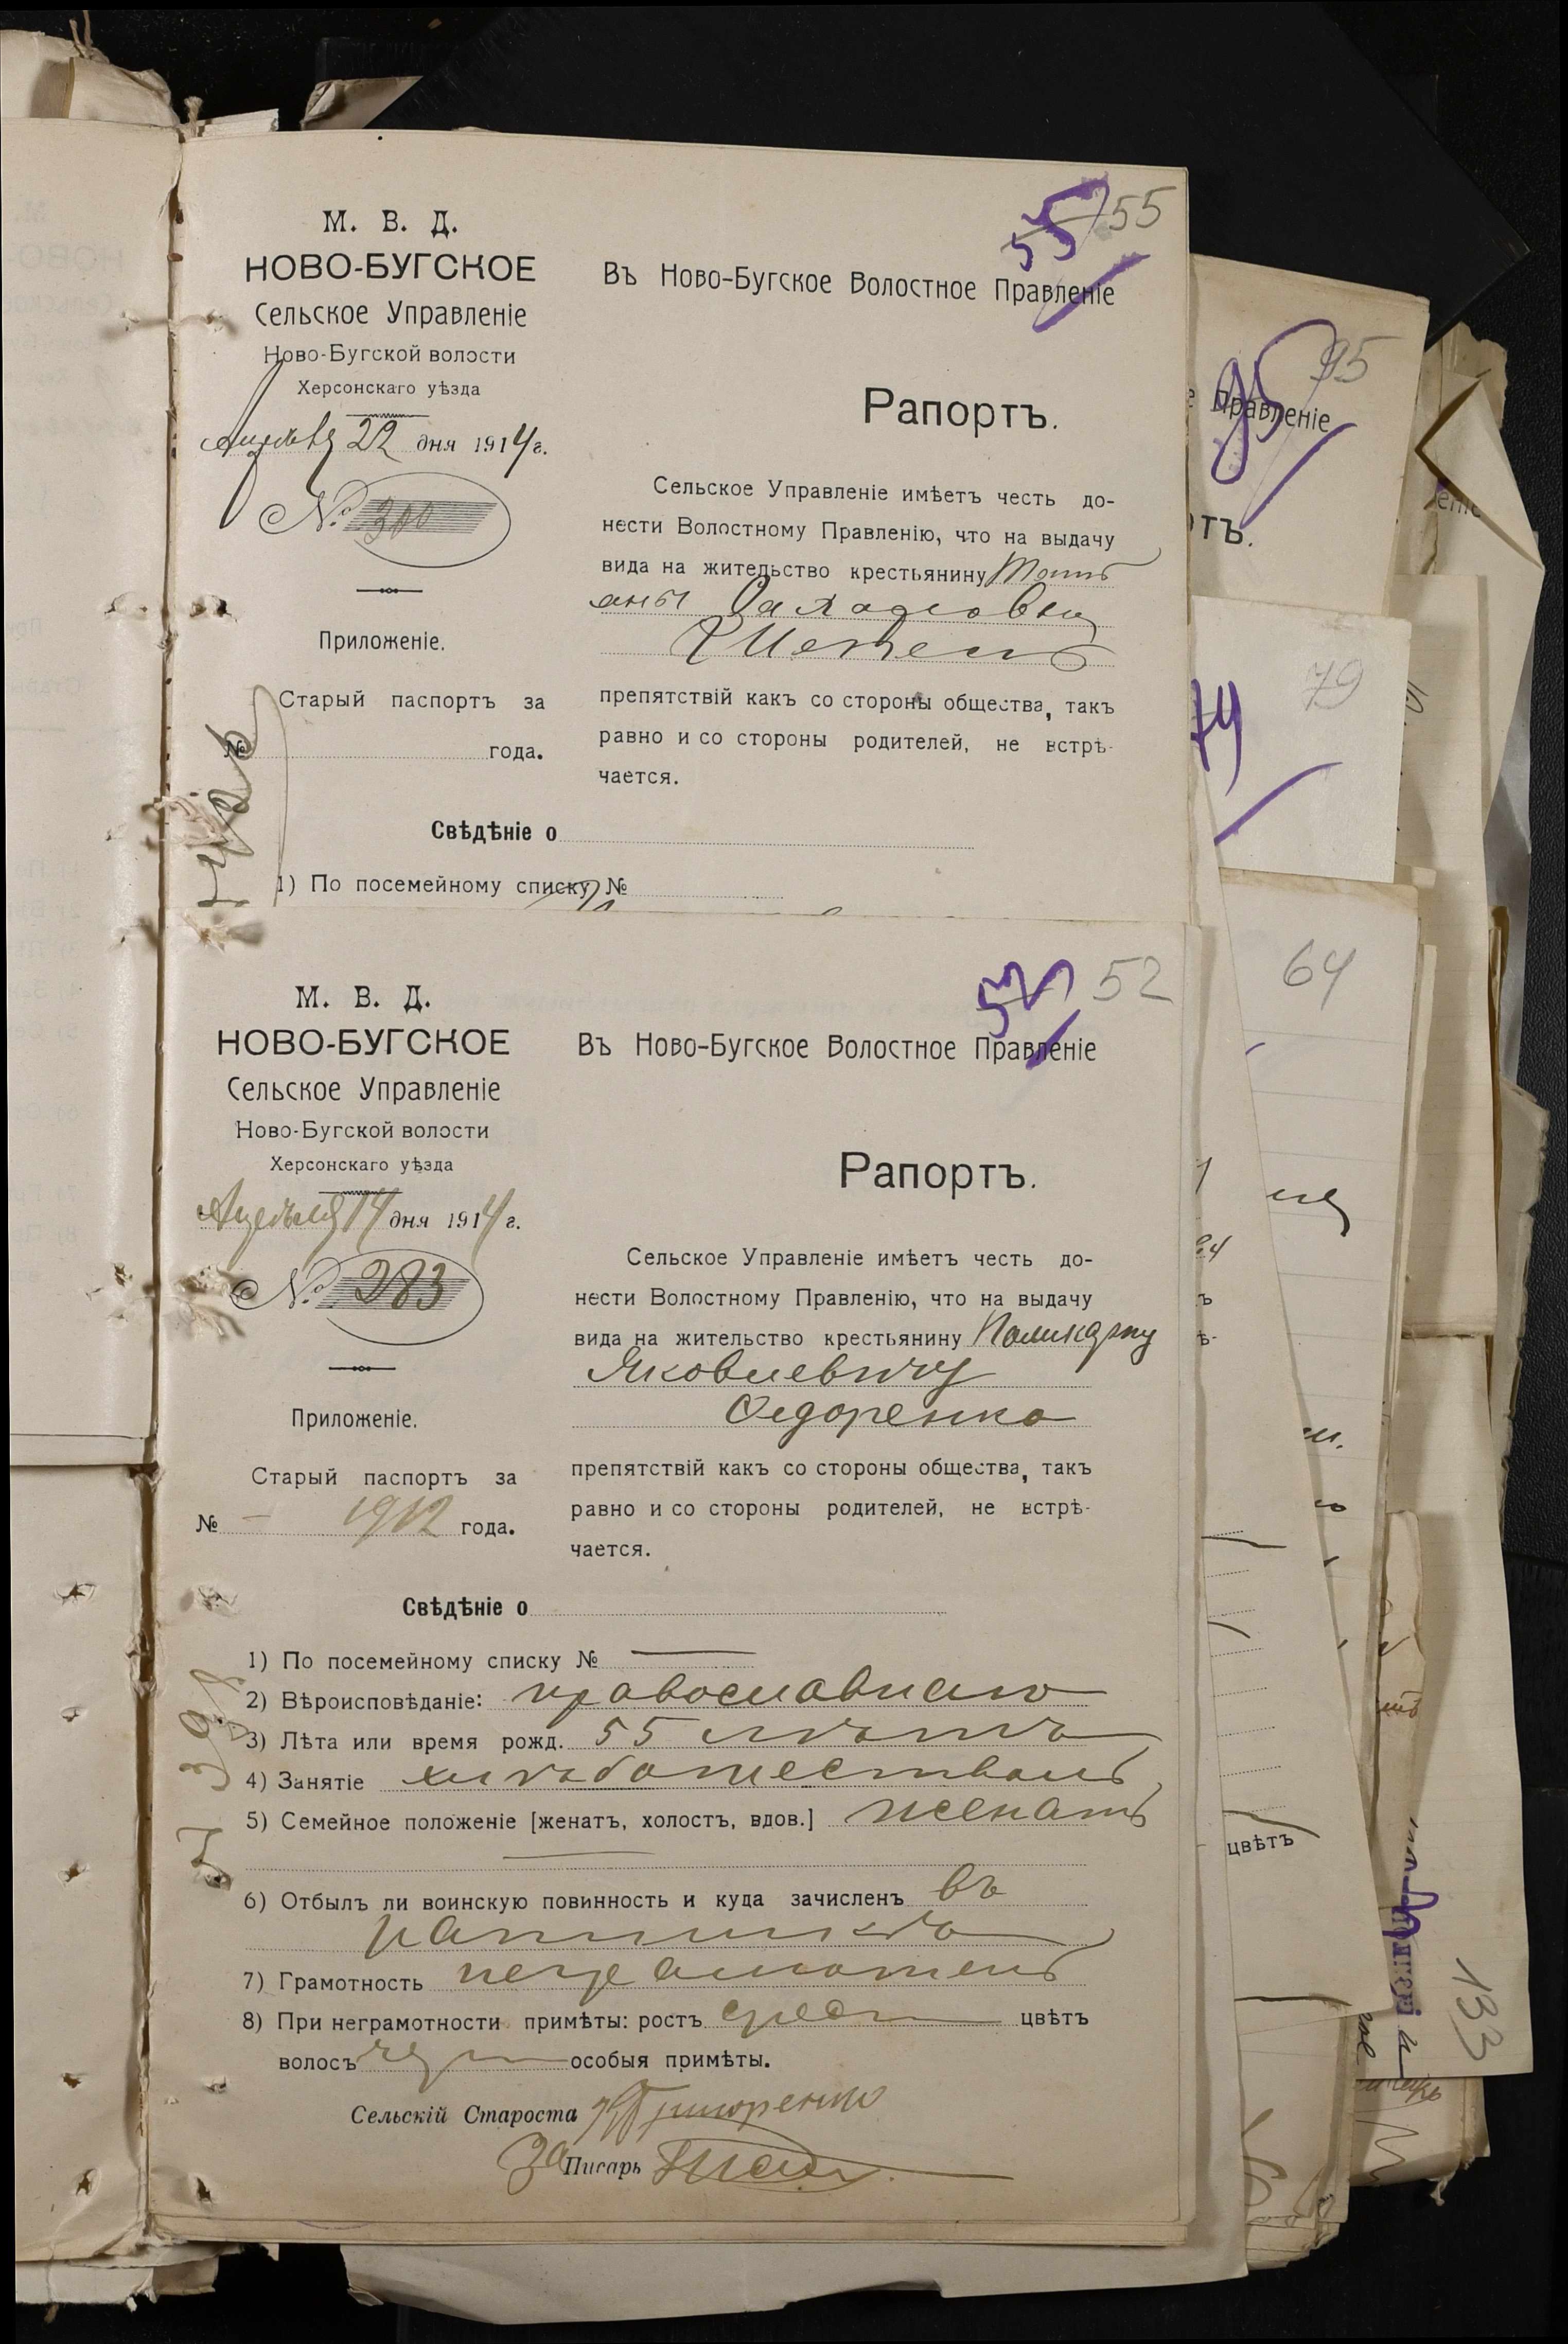 55 55
М. В. Д.
НОВО-БУГСКОЕ
Сельское Управленіе
Ново-Бугской волости
Херсонскаго уѣзда
22 дня 1914 г.
№ 300
Приложеніе.
Старый паспортъ за
№ года.
Въ Ново-Бугское Волостное Правленіе
Рапортъ.
Сельское Управленіе имѣетъ честь до-
нести Волостному Правленію, что на выдачу
вида на жительство крестьянину
препятствій какъ со стороны общества, такъ
равно и со стороны родителей, не встрѣ-
чается.
Свѣдѣніе о
1) По посемейному списку №
52 52
М. В. Д.
НОВО-БУГСКОЕ
Сельское Управленіе
Ново-Бугской волости
Херсонскаго уѣзда
Апреля 14 дня 1914 г.
№ 283
Приложеніе.
Старый паспортъ за
№ — 1912 года.
Въ Ново-Бугское Волостное Правленіе
Рапортъ.
Сельское Управленіе имѣетъ честь до-
нести Волостному Правленію, что на выдачу
вида на жительство крестьянину Поликарпу
Яковлевичу
Федоренко
препятствій какъ со стороны общества, такъ
равно и со стороны родителей, не встрѣ-
чается.
Свѣдѣніе о
1) По посемейному списку № —
2) Вѣроисповѣданіе: православнаго
3) Лѣта или время рожд. 55 лѣтъ
4) Занятіе хлѣбопашествомъ
5) Семейное положеніе [женатъ, холостъ, вдов.] женатъ
6) Отбылъ ли воинскую повинность и куда зачисленъ въ
7) Грамотность неграмотенъ
8) При неграмотности примѣты: ростъ сред цвѣтъ
волосъ особыя примѣты.
Сельскій Староста
За Писарь
95 95
Правленіе
ртъ.
79 79
64
цвѣтъ
133